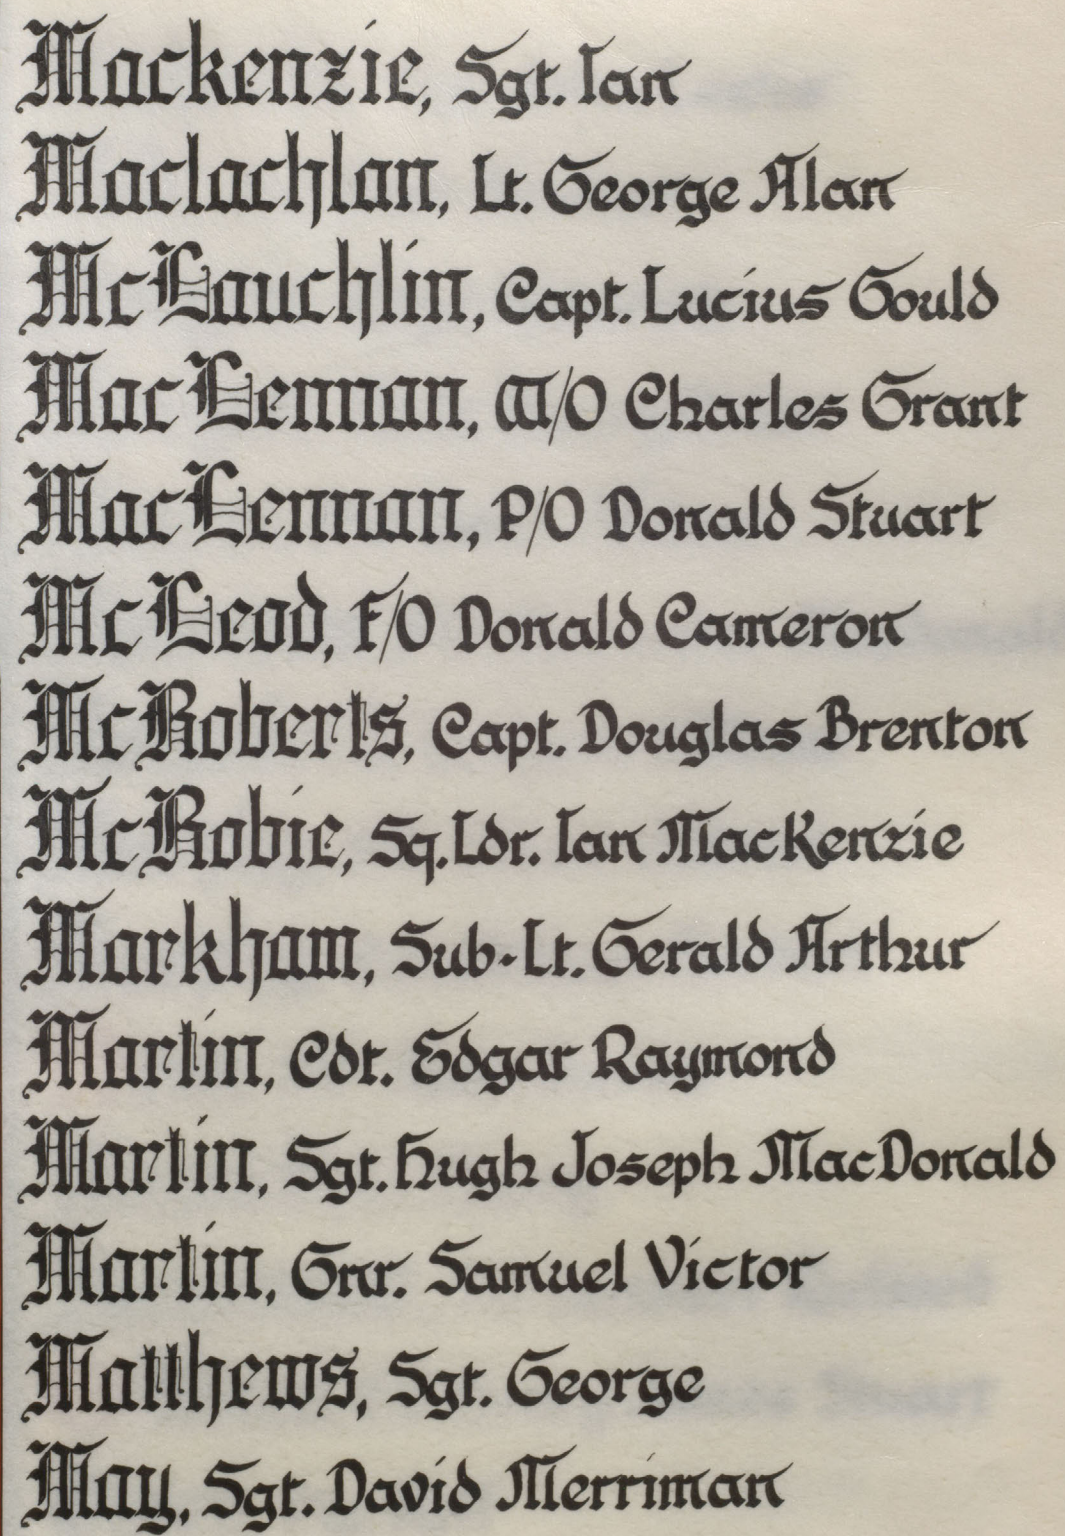 Mackenzie, Sgt. Ian
Maclachlan, Lt. George Alan
McLauchlin, Capt. Lucius Gould
MacLennan, W/O Charles Grant
MacLennan, P/O Donald Stuart
McLeod, F/O Donald Cameron
McRoberts, Capt. Douglas Brenton
McRobie, Sq.Ldr. Ian MacKenzie
Markham, Sub-Lt. Gerald Arthur
Martin, Cdt. Edgar Raymond
Martin, Sgt. Hugh Joseph MacDonald
Martin, Gnr. Samuel Victor
Matthews, Sgt. George
May, Sgt. David Merriman